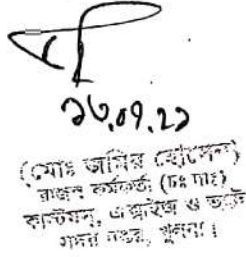 ১৩.০৭.২১
(মোঃ জামির হোসেন)
রাজস্ব কর্মকর্তা (চঃ দাঃ)
কাস্টমস, এক্সাইজ ও ভ্যাট
সদর দপ্তর, খুলনা।